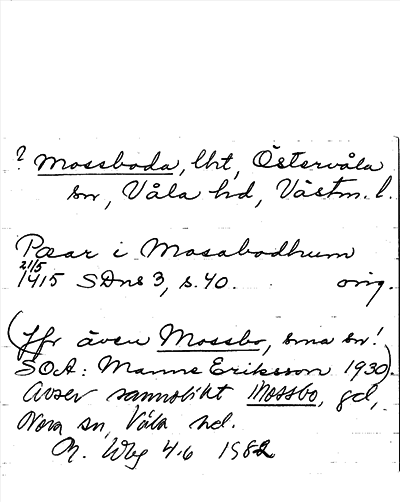 ? Mossboda, lht, Östervåla
sn, Våla hd, Västm. l.
Pæsar i Mosabodhum
21/5
1415 SDns 3, s. 40. orig.
(Jfr även Mossbo, sma sn!
SOA: Manne Eriksson 1930).
Avser sannolikt Mossbo, gd,
Nora sn, Våla hd.
M. Wbg 4.6 1982